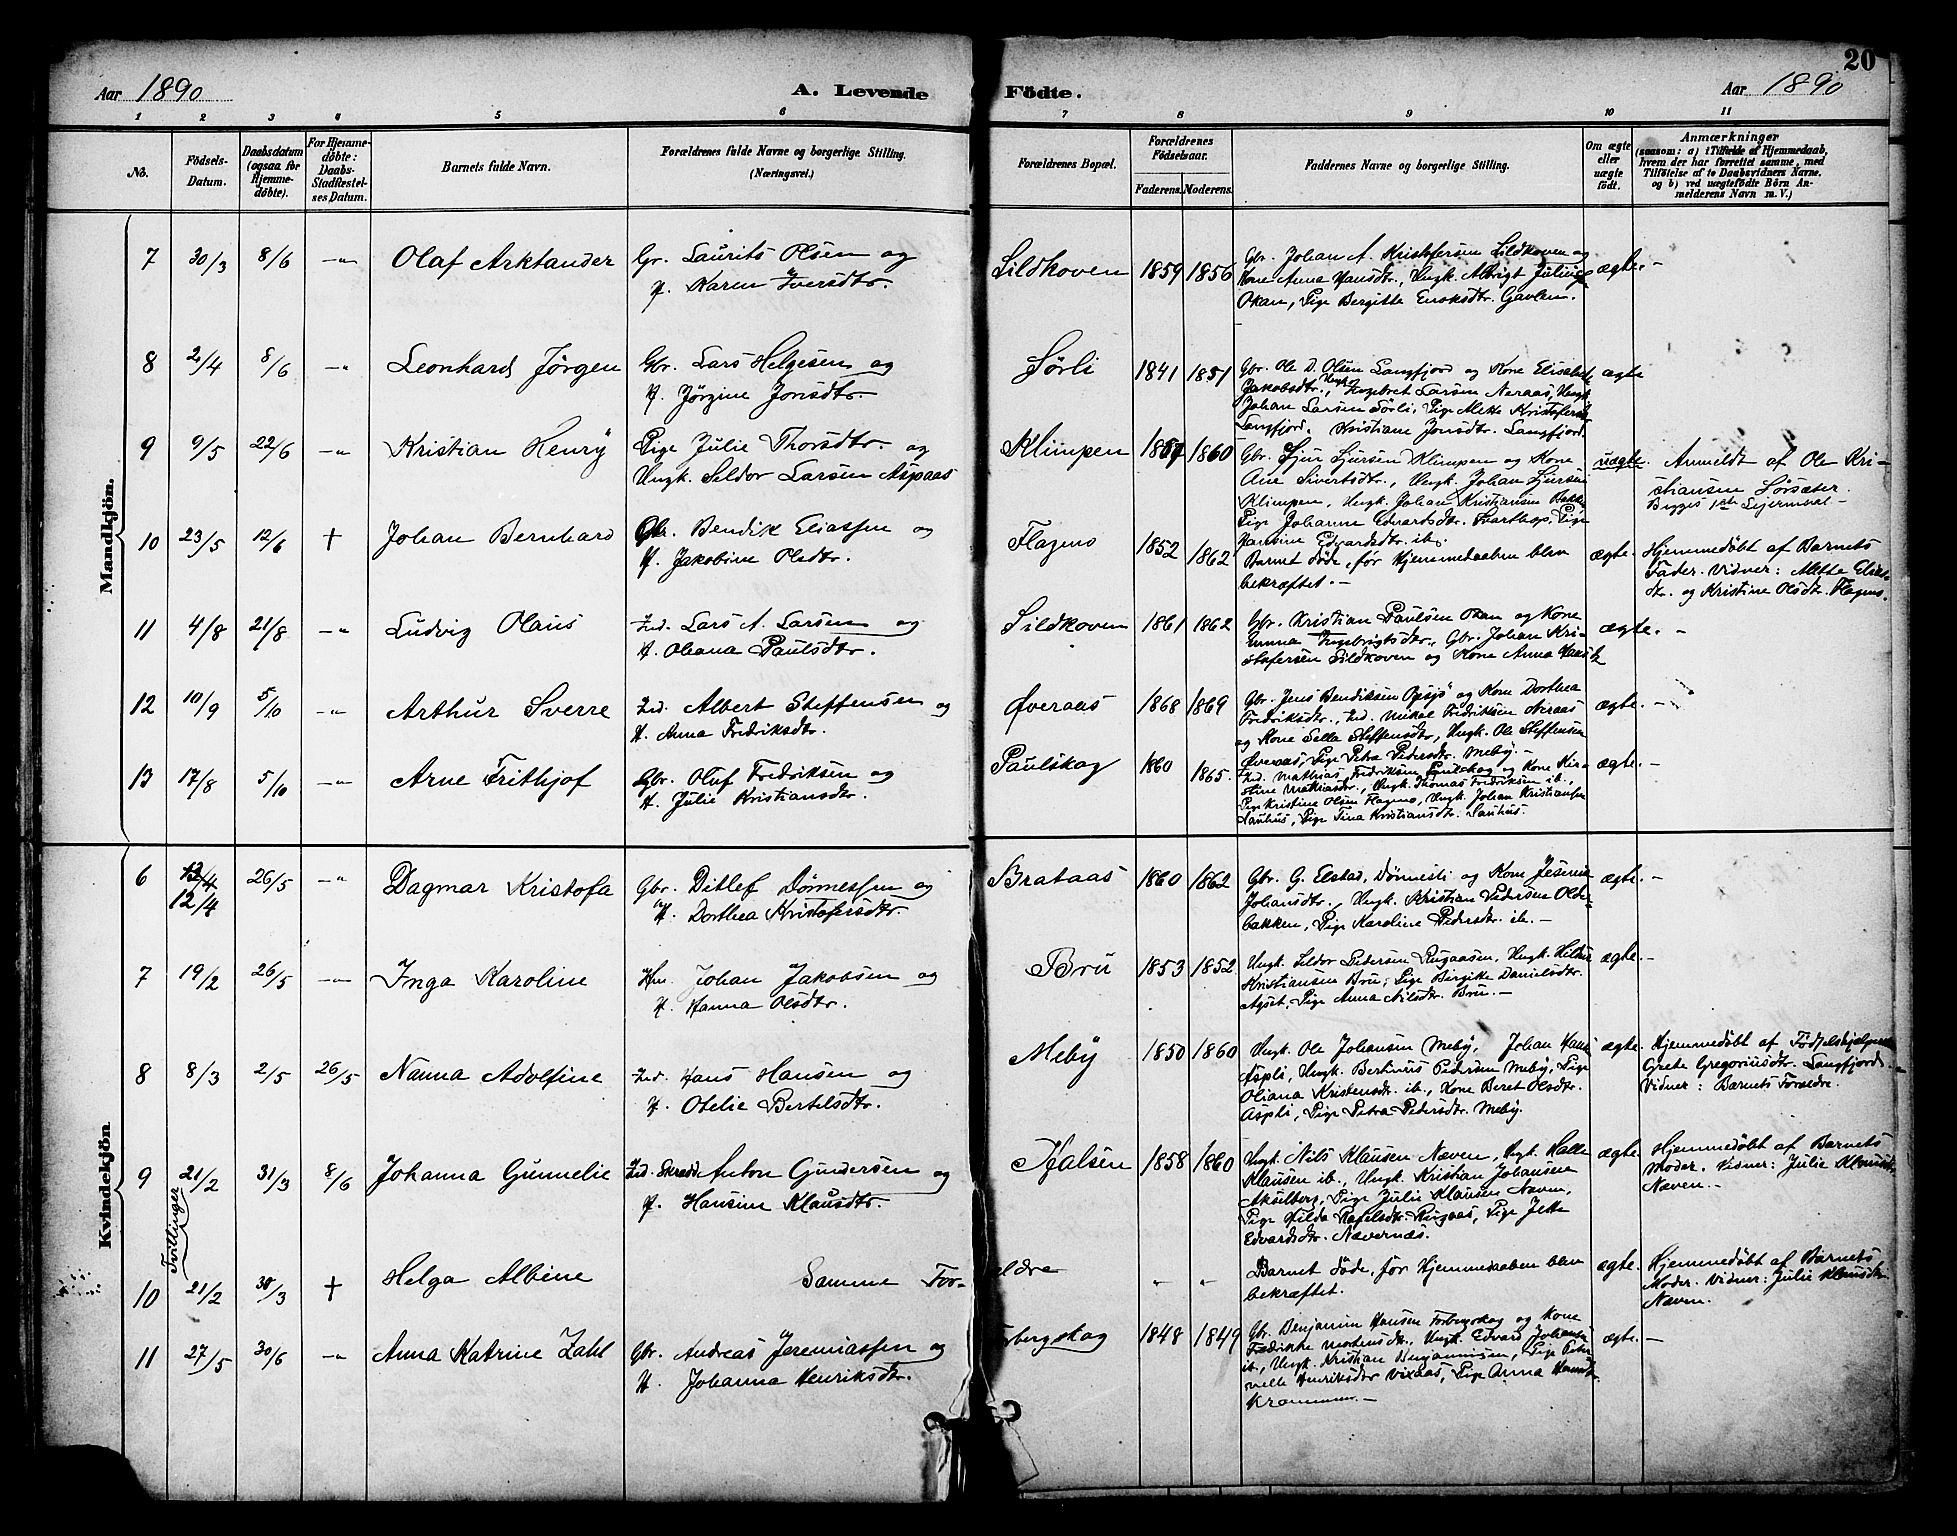 20
Aar 1890
A. Levende Födte.
Aar 1890
1 2 3 4 5 6 7 8 9 10 11
No.
Födsels-Datum.
Daabsdatum (ogsaa for Hjemme-döbte).
For Hjemme-döbte: Daabs-Stadfæstel-ses Datum.
Barnets fulde Navn.
Forældrenes fulde Navne og borgerlige Stilling. (Næringsvei.)
Forældrenes Bopæl.
Forældrenes Födselsaar.
Faderens. Moderens.
Faddernes Navne og borgerlige Stilling.
Om ægte eller uægte födt.
Anmærkninger
(saasom: a) i Tilfælde af Hjemmedaab,
hvem der har forrettet samme, med
Tilföielse af to Daabsvidners Navne.
og b) ved uægtefödte Börn An-
melderens Navn m. V.)
Mandkjön.
7 30/3 8/6 -"- Olaf Arktander Gr. Laurits Olsen og
H. Karen Iversdtr.
Sildhoven 1859 1856
Gbr. Johan A. Kristofersen Sildhoven og
Kone Anna Hansdtr., Ungk. Albrigt Julius
Okan, Pige Bergitte Gavlen.
ægte. -
8 2/4 8/6 -"- Leonhard Jörgen Gbr. Lars Helgesen og
H. Jörgine Jonsdtr.
Sörli 1841 1851
Gbr. Ole D. Olsen Langfjord og Kone Elisabeth
Jakobsdtr., Ungk. Ingebret Larsen Neraas, Ungk.
Johan Larsen Sörli, Pige Mette Kristofersdtr
Langfjord. Kristiane Jonsdtr. Langfjord.
ægte
9 9/5 22/6 -"- Kristian Henry Pige Julie Thorsdtr. og
Ungk. Seldor Larsen Aspaas
Klimpen 1867 1860
Gbr. Sjur Sjursen Klimpen og Kone
Ane Sivertsdtr., Ungk. Johan Sjursen
Klimpen, Ungk. Johan Kristiansen
Pige Johanna Edvardsdtr. Pige
Hansine Edvardsdtr. ib.
uægte. Anmeldt af Ole Kri-
stiansen Sörsæter.
10 23/5 12/6 + Johan Bernhard Gbr. Bendik Eliassen og
H. Jakobine Olsdtr.
Flagmo 1852 1862
Barnet döde, för Hjemmedaaben blev
bekræftet. -
ægte. Hjemmedöbt af Barnets
Fader. Vidner: Mette Elias-
dtr. og Kristine Olsdtr. Flagmo.
11 4/8 21/8 -"- Ludvig Olaus Ind. Lars A. Larsen og
H. Oleana Paulsdtr.
Sildhoven 1861 1862
Gbr. Kristian Paulsen Okan og Kone
Emma Ingebrigtsdtr., Gbr. Johan Kri-
stofersen Sildhoven og Kone Anna Hansdtr
ægte. -
12 10/9 5/10 -"- Arthur Sverre Ind. Albert Steffensen og
H. Anna Fredriksdtr.
Øveraas 1868 1869
Gbr. Jens Bendiksen Opsjö og Kone Dorthea
Fredriksdtr., Ind. Mikal Fredriksen Neraas
og Kone Sella Steffensdtr., Ungk. Ole Steffensen
Øveraas, Pige Petra Pedersdtr. Meby. -
ægte. -
13 17/8 5/10 -"- Arne Frithjof Gbr. Oluf Fredriksen og
H. Julie Kristiansdtr.
Paulskog 1860 1865.
Ind. Mathias Fredriksen Paulskog og Kone Kir-
stine Mathiasdtr., Ungk. Thomas Fredriksen ib.,
Pige Kristine Olsen Flagmo, Ungk. Johan Kristiansen
Sauhus, Pige Tina Kristiansdtr. Sauhus.
ægte. -
Kvindekjön
6 13/4 12/4 26/5 -"- Dagmar Kristofa Gbr. Ditlef Dönnessen og
H. Dorthea Kristofersdtr.
Brataas 1860 1862
Gbr. G. Elstad, Dönnesli og Kone Jesine
Johansdtr., Ungk. Kristian Pedersen Olde-
bakken, Pige Karoline Pedersdtr. ib. -
ægte. -
7 19/2 26/5 -"- Inga Karoline Hm. Johan Jakobsen og
H. Hanna Olsdtr.
Bru 1853 1852
Ungk. Seldor Pedersen Rugaasen, Ungk. Hilmar
Kristiansen Bru, Pige Bergitte Danielsdtr.
Agset, Pige Anna Nilsdtr. Bru. -
ægte. -
8 8/3 2/5 26/5 Nanna Adolfine Ind. Hans Hansen og
H. Otelie Bertelsdtr.
Meby 1850 1860
Ungk. Ole Johansen Meby, Johan Hansen
Aspli, Ungk. Bertinus Pedersen Meby, Pige
Oliana Kristensdtr. ib., Kone Beret Olsdtr.
Aspli, Pige Petra Pedersdtr. Meby.
ægte. Hjemmedöbt af Födselshjelperske
Grete Gregoriusdtr. Langfjord.
Vidner: Barnets Forældre.
Tvillinger
9 21/2 31/3 8/6 Johanna Gunnelie Ind. Skredd. Anton Gundersen og
H. Hansine Klausdtr.
Kjalsen 1858 1860
Ungk. Nils Klausen Næven, Ungk. Halle
Klausen ib., Ungk. Kristian Johansen
Akselberg, Pige Julie Klausen Næven,
Pige Hilda Rafelsdtr. Rugaas, Pige Jette
Edvardsdtr. Nævernæs.
ægte. Hjemmedöbt af Barnets
Moder. Vidner: Julie Klausdtr
Næven. -
10 21/2 30/3 + Helga Albine Samme For-
ældre " "
Barnet döde, för Hjemmedaaben blev
bekræftet.
ægte. Hjemmedöbt af Barnets
Moder. Vidner: Julie Klausdtr
Næven.
11 27/5 30/6 -"- Anna Katrine Zahl Gbr. Andreas Jeremiassen og
H. Johanna Henriksdtr.
bergskog 1848 1849
Gbr. Benjamin Hansen Forbergskog og Kone
Fredrikke Mortensdtr., Ungk. Edvard Johansen
ib., Ungk. Kristian Benjaminsen, Pige Petr-
nelle Henriksdtr Vixaas, Pige Anna Hansdtr
ægte. -